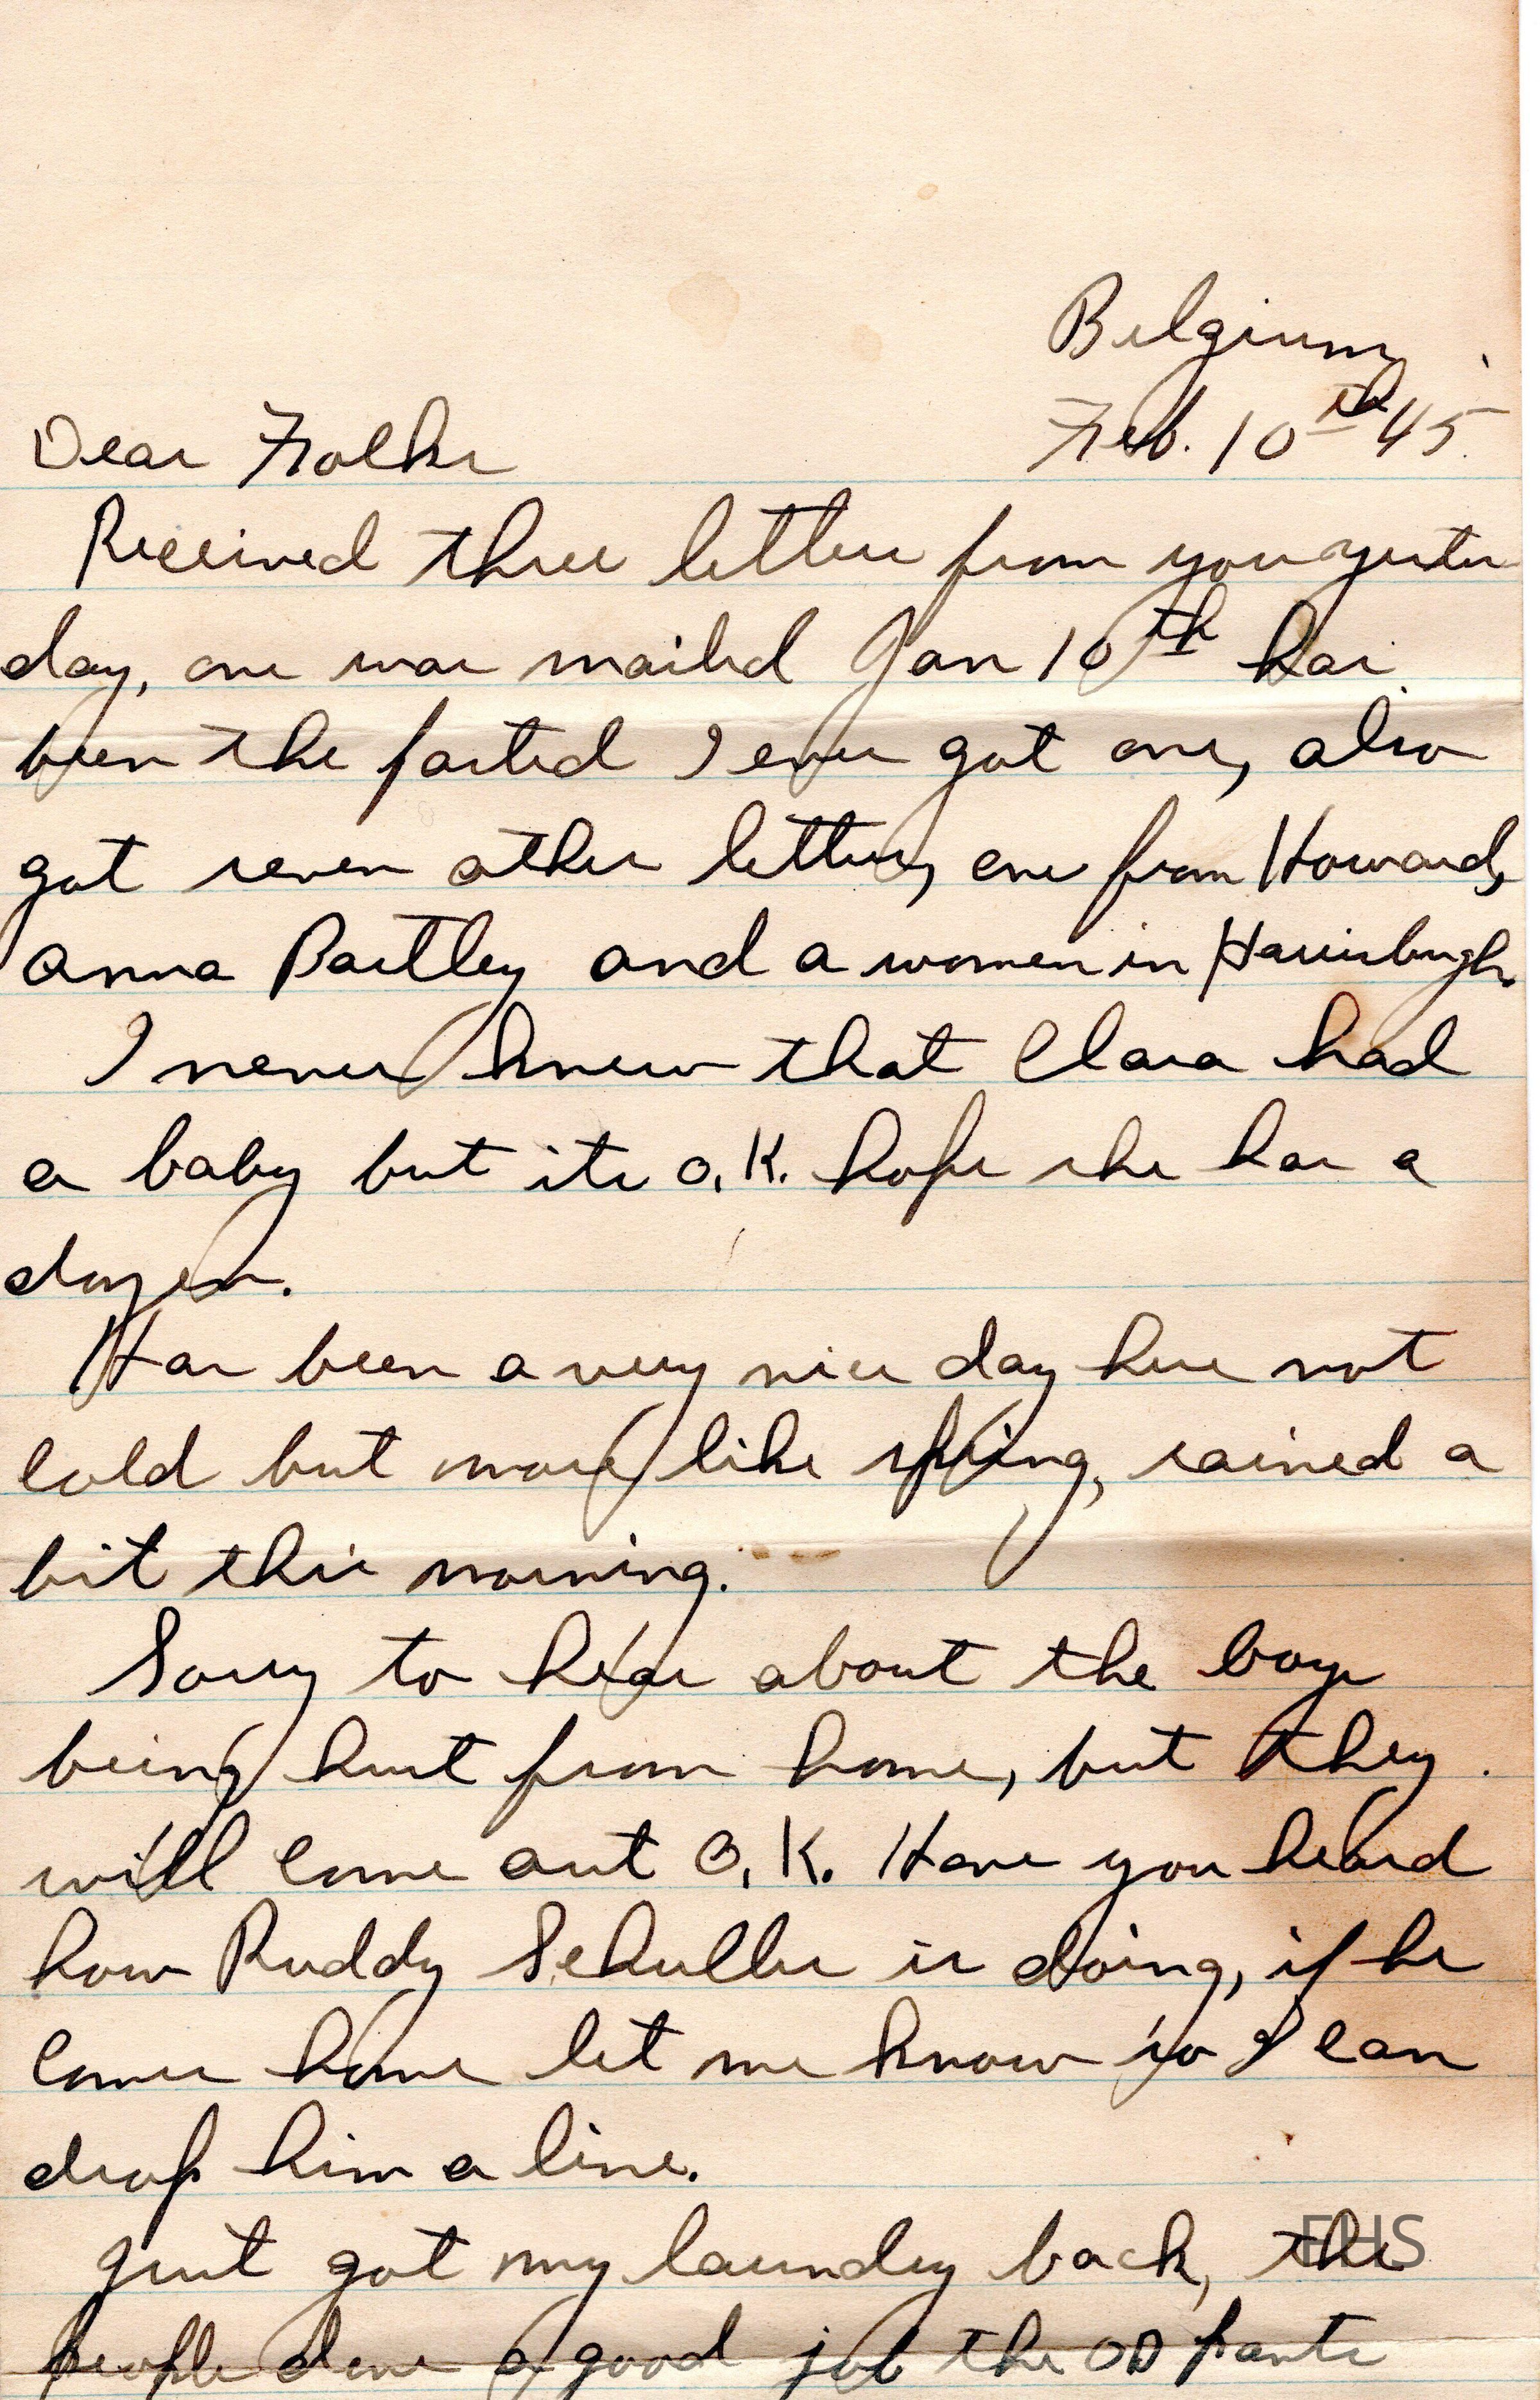 Belgium
Feb. 10th 45.
Dear Folks
Received three letters from you yester
day, one was mailed Jan 10th has
been the fasted I ever got one, also
got seven other letters, one from Howard,
Anna Bartley and a women in Harrisburgh.
I never knew that Clara had
a baby but its O.K. hope she has a
dozen.
Has been a very nice day here not
cold but more like spring, rained a
bit this morning.
Sorry to hear about the boys
being hurt from home, but they
will come out O.K. Have you heard
how Ruddy Schuller is doing, if he
comes home let me know so I can
drop him a line.
Just got my laundry back, the
people done a good job the OD pants
EHS